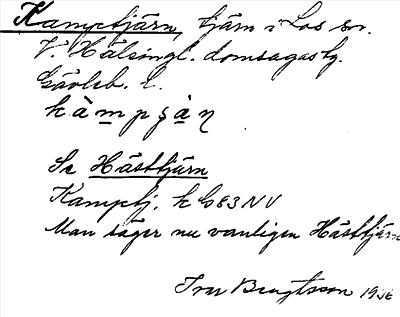 Kamptjärn, tjärn i Los sn.
V. Hälsingl. domsagas tg.
Gävleb. l.
kàmpʂàn
Se Hästtjärn
Kamptj. k GE3NV
Man säger nu vanligen Hästtjärn
Ivar Bengtsson